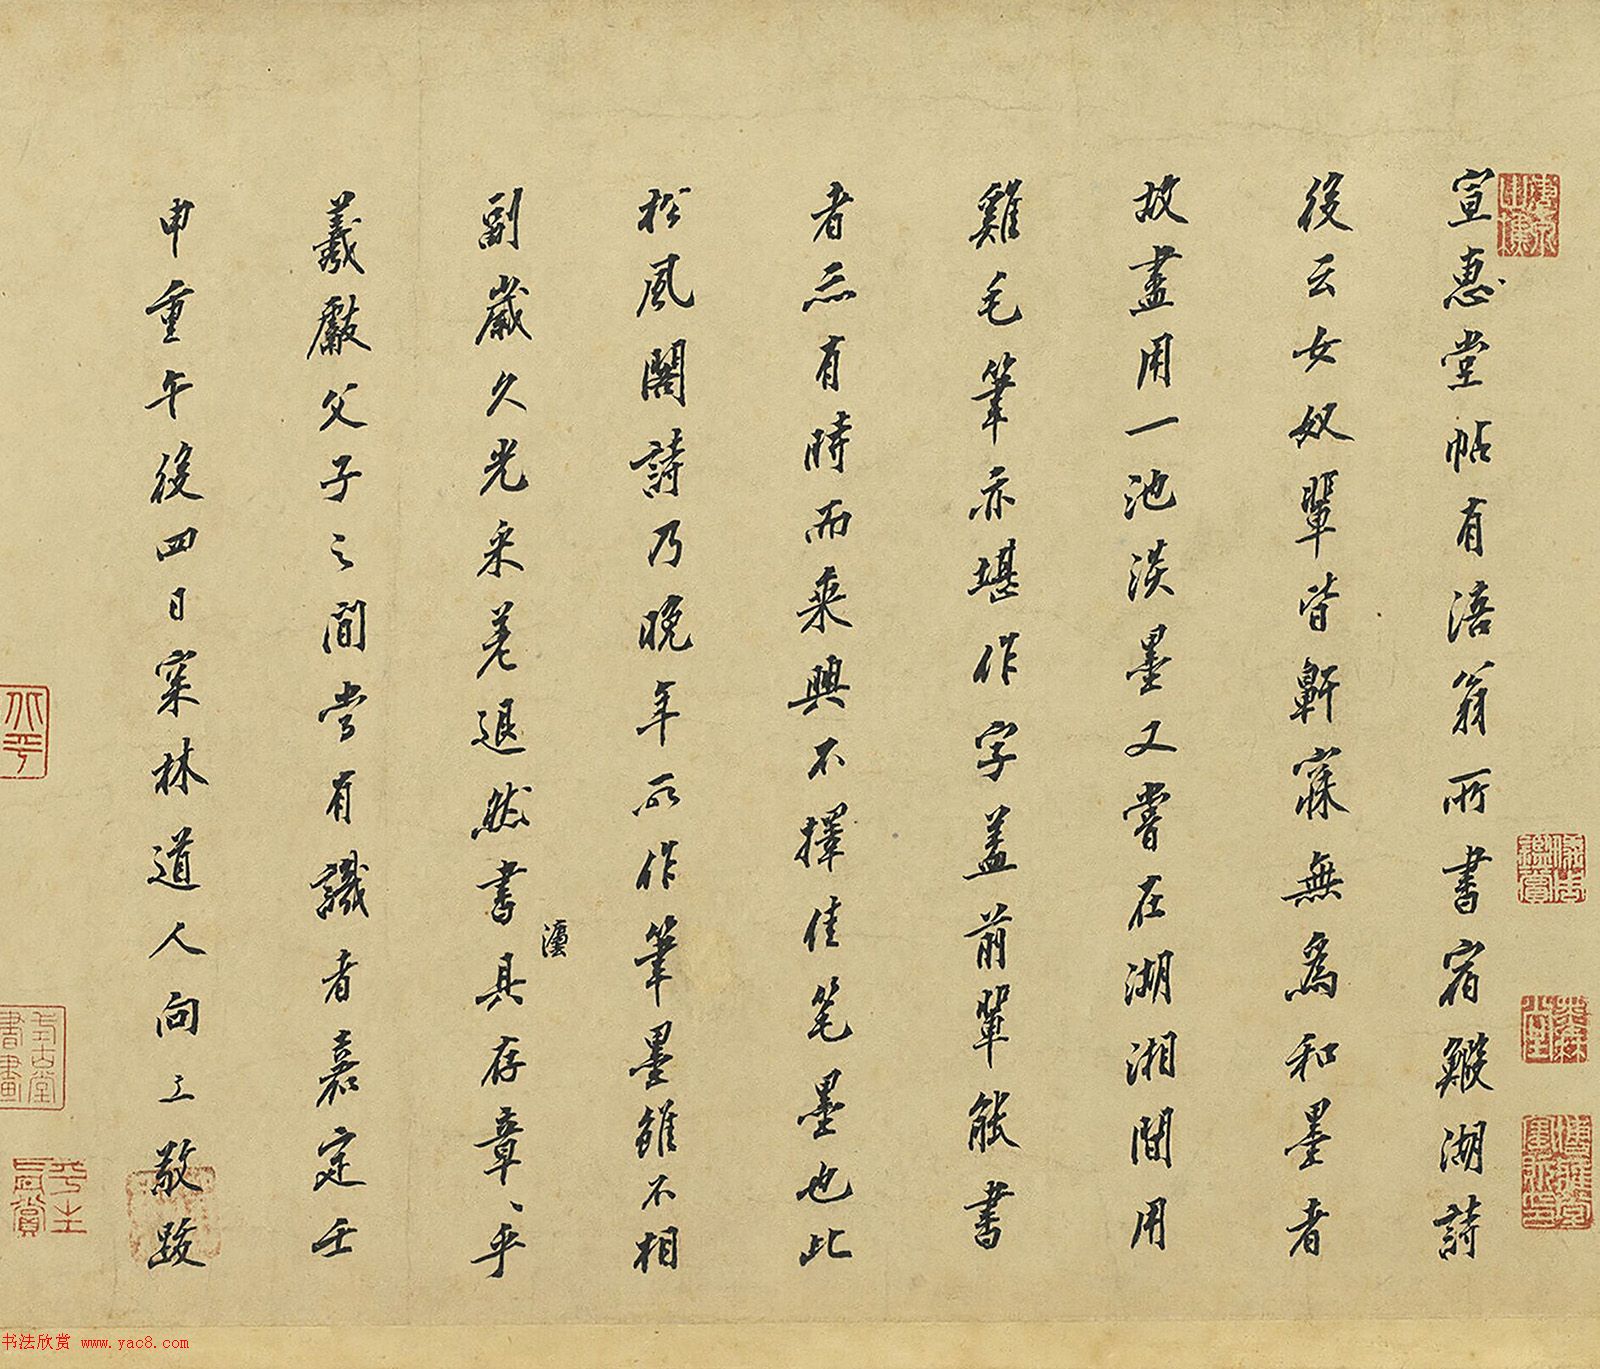 宣惠堂帖有涪翁所書宿鰕湖詩
後云女奴輩皆鼾寐無為和墨者
故盡用一池淡墨又嘗在湖湘間用
雞毛筆亦堪作字盖前輩能書
者亦有時而乘興不擇佳笔墨也此
松風閣詩乃晚年所作筆墨雖不相
副歲久光采差退然書具存章、乎
灋
羲獻父子之間當有識者嘉定壬
申重午後四日寀林道人向工敬跋
書法欣赏 www.yac8.com